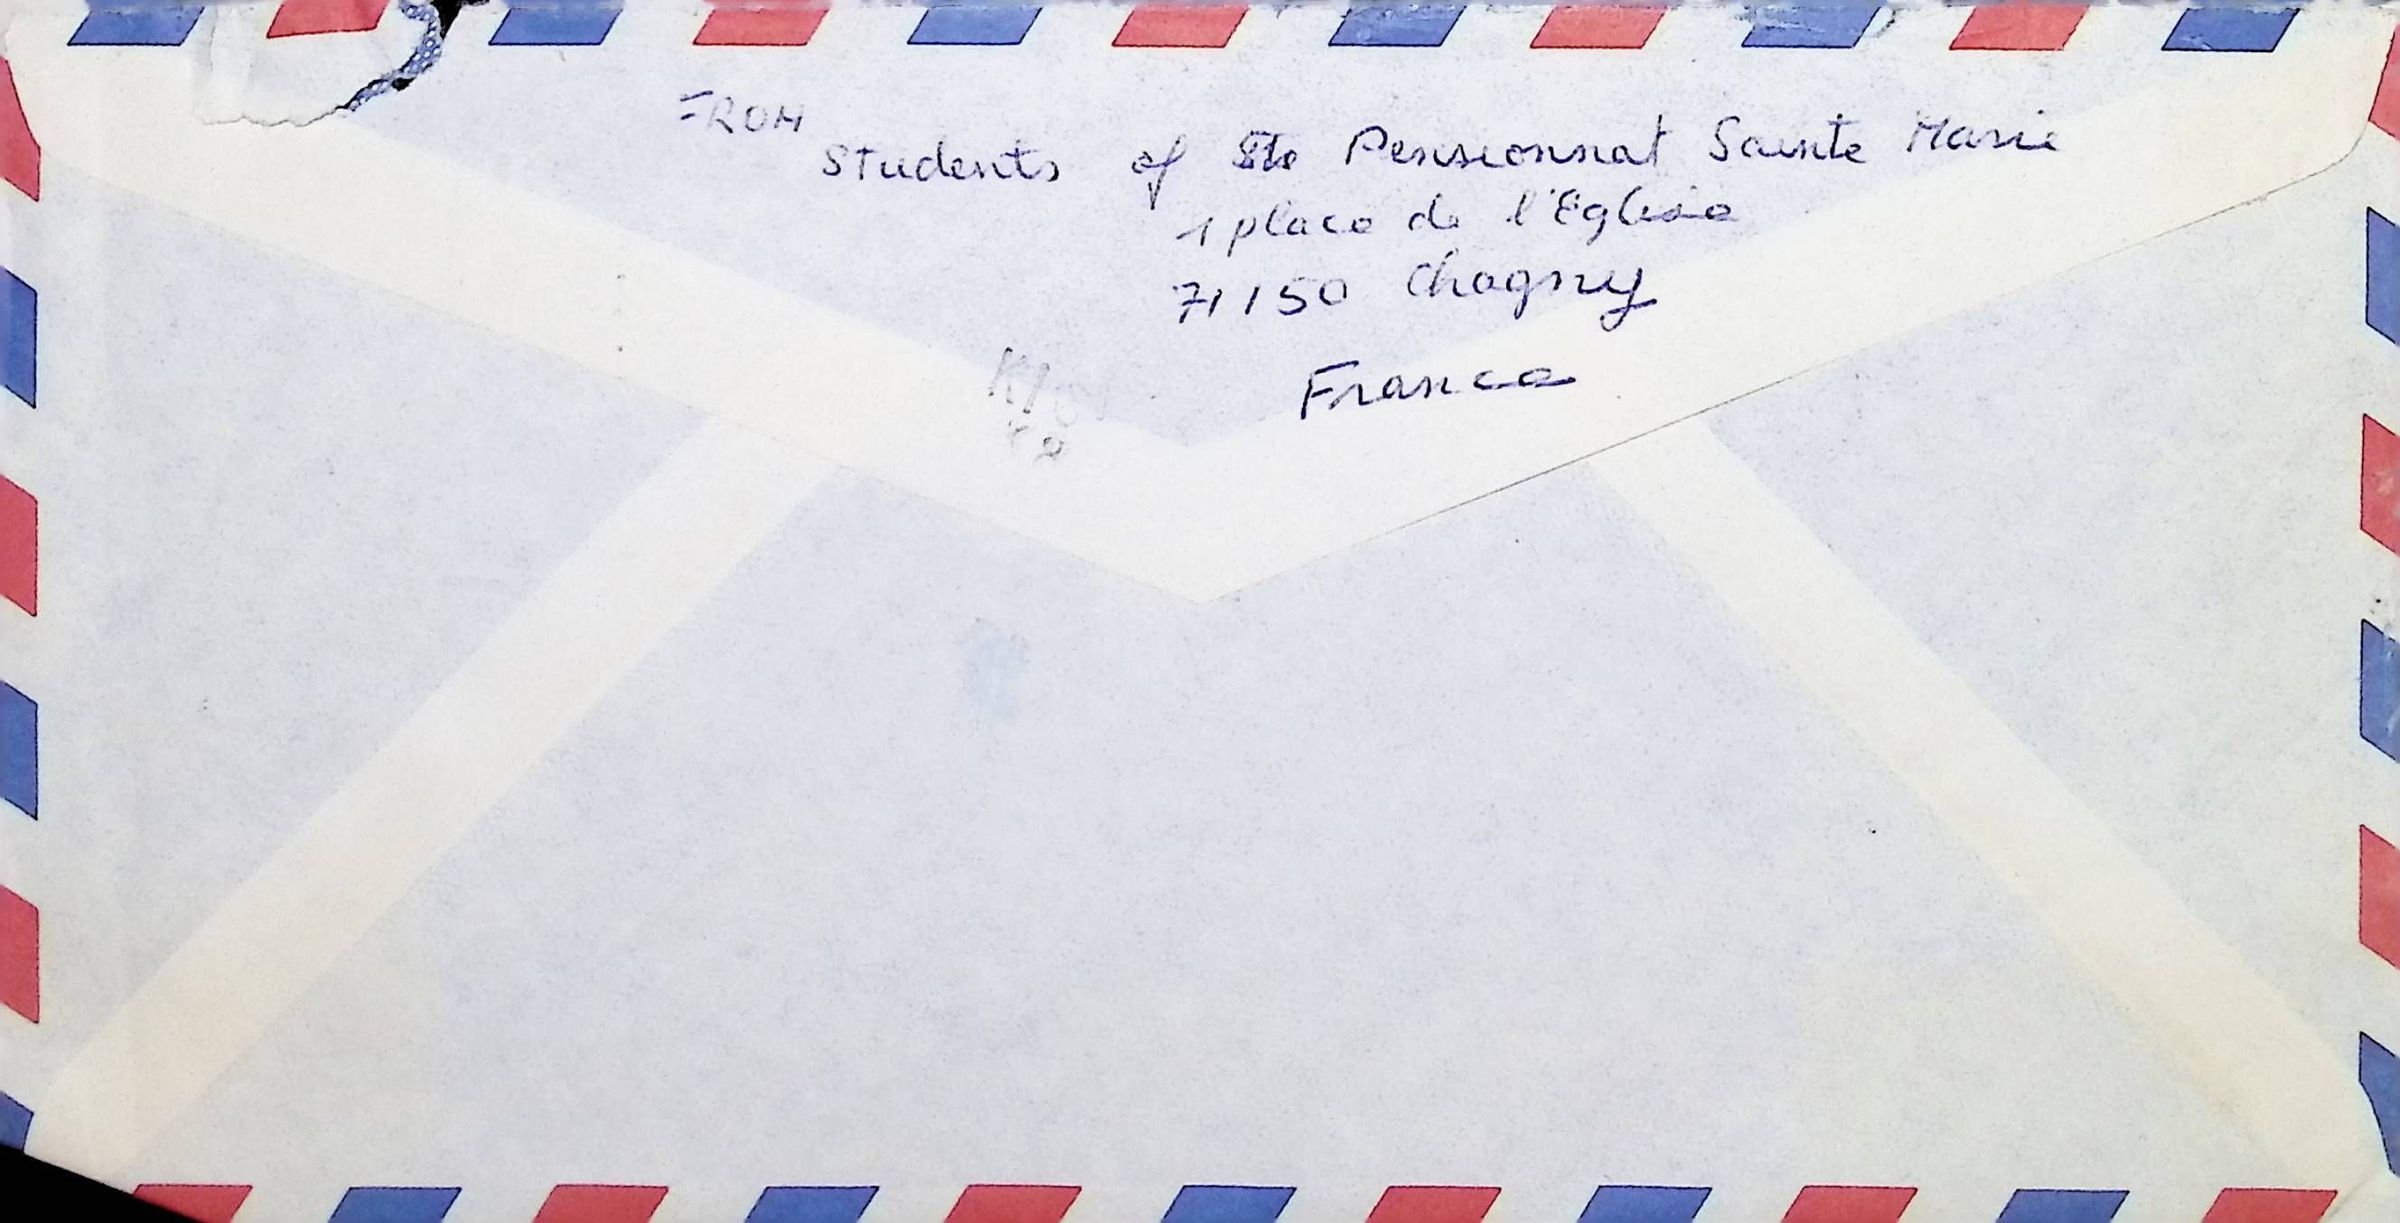 FROM
Students of Pensionnat Sainte Marie
1 place de l'Eglise
71150 Chagny
France